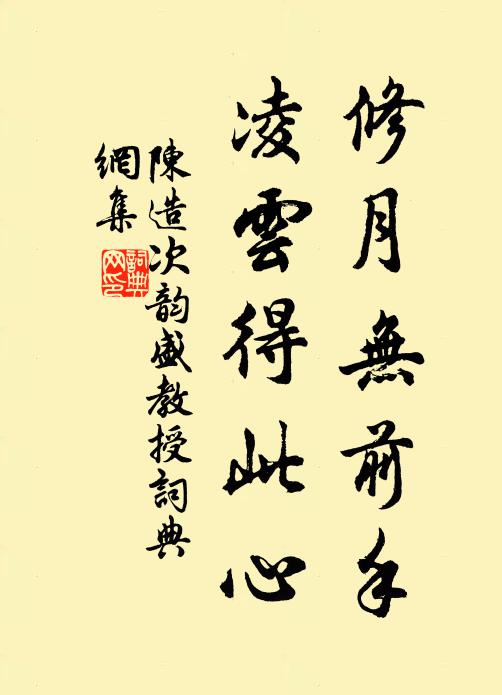 修月無前手
凌雲得此心
陳造次韵盛教授詞典
網集
詞典
网印